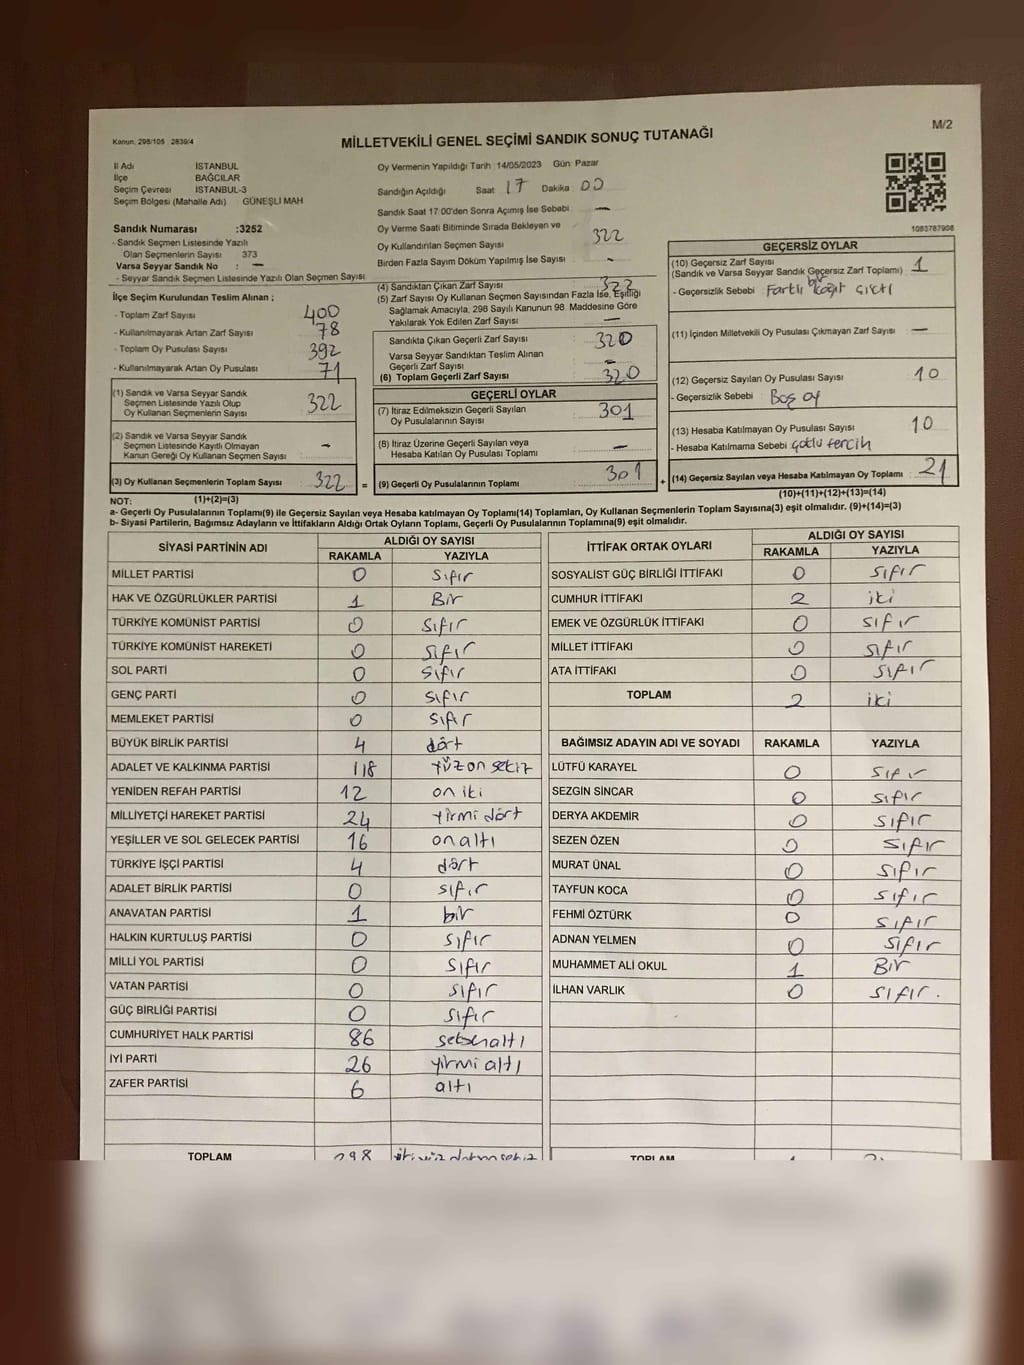 M/2
Kanun, 298/105 2839/4
MİLLETVEKİLİ GENEL SEÇİMİ SANDIK SONUÇ TUTANAĞI
İl Adı İSTANBUL
İlçe BAĞCILAR
Seçim Çevresi İSTANBUL-3
Seçim Bölgesi (Mahalle Adı) GÜNEŞLİ MAH
Sandık Numarası :3252
- Sandık Seçmen Listesinde Yazılı
Olan Seçmenlerin Sayısı 373
Varsa Seyyar Sandık No : –
- Seyyar Sandık Seçmen Listesinde Yazılı Olan Seçmen Sayısı
İlçe Seçim Kurulundan Teslim Alınan ;
- Toplam Zarf Sayısı 400
- Kullanılmayarak Artan Zarf Sayısı 78
- Toplam Oy Pusulası Sayısı 392
- Kullanılmayarak Artan Oy Pusulası 71
(1) Sandık ve Varsa Seyyar Sandık
Seçmen Listesinde Yazılı Olup
Oy Kullanan Seçmenlerin Sayısı 322
(2) Sandık ve Varsa Seyyar Sandık
Seçmen Listesinde Kayıtlı Olmayan
Kanun Gereği Oy Kullanan Seçmen Sayısı : –
(3) Oy Kullanan Seçmenlerin Toplam Sayısı 322 =
(1)+(2)=(3)
Oy Vermenin Yapıldığı Tarih 14/05/2023 Gün: Pazar
Sandığın Açıldığı Saat 17 Dakika 00
Sandık Saat 17:00'den Sonra Açımış İse Sebebi : –
Oy Verme Saati Bitiminde Sırada Bekleyen ve
Oy Kullandırılan Seçmen Sayısı 322
Birden Fazla Sayım Döküm Yapılmış İse Sayısı –
(4) Sandıktan Çıkan Zarf Sayısı 322
(5) Zarf Sayısı Oy Kullanan Seçmen Sayısından Fazla İse, Eşitliği
Sağlamak Amacıyla, 298 Sayılı Kanunun 98 Maddesine Göre
Yakılarak Yok Edilen Zarf Sayısı –
Sandıkta Çıkan Geçerli Zarf Sayısı 320
Varsa Seyyar Sandıktan Teslim Alınan
Geçerli Zarf Sayısı –
(6) Toplam Geçerli Zarf Sayısı 320
GEÇERLİ OYLAR
(7) İtiraz Edilmeksizin Geçerli Sayılan
Oy Pusulalarının Sayısı 301
(8) İtiraz Üzerine Geçerli Sayılan veya
Hesaba Katılan Oy Pusulası Toplamı –
(9) Geçerli Oy Pusulalarının Toplamı 301 +
1083787908
GEÇERSİZ OYLAR
(10) Geçersiz Zarf Sayısı 1
(Sandık ve Varsa Seyyar Sandık Geçersiz Zarf Toplamı)
- Geçersizlik Sebebi Farklı bir kağıt
(11) İçinden Milletvekili Oy Pusulası Çıkmayan Zarf Sayısı –
(12) Geçersiz Sayılan Oy Pusulası Sayısı 10
- Geçersizlik Sebebi Boş oy
(13) Hesaba Katılmayan Oy Pusulası Sayısı 10
- Hesaba Katılmama Sebebi çoklu tercih
(14) Geçersiz Sayılan veya Hesaba Katılmayan Oy Toplamı 21
(10)+(11)+(12)+(13)=(14)
NOT:
a- Geçerli Oy Pusulalarının Toplamı(9) ile Geçersiz Sayılan veya Hesaba katılmayan Oy Toplamı(14) Toplamları, Oy Kullanan Seçmenlerin Toplam Sayısına(3) eşit olmalıdır. (9)+(14)=(3)
b- Siyasi Partilerin, Bağımsız Adayların ve İttifakların Aldığı Ortak Oyların Toplamı, Geçerli Oy Pusulalarının Toplamına(9) eşit olmalıdır.
SİYASİ PARTİNİN ADI ALDIĞI OY SAYISI
RAKAMLA YAZIYLA
MİLLET PARTİSİ 0 Sıfır
HAK VE ÖZGÜRLÜKLER PARTİSİ 1 Bir
TÜRKİYE KOMÜNİST PARTİSİ 0 Sıfır
TÜRKİYE KOMÜNİST HAREKETİ 0 Sıfır
SOL PARTİ 0 Sıfır
GENÇ PARTİ 0 Sıfır
MEMLEKET PARTİSİ 0 Sıfır
BÜYÜK BİRLİK PARTİSİ 4 dört
ADALET VE KALKINMA PARTİSİ 118 Yüz on sekiz
YENİDEN REFAH PARTİSİ 12 on iki
MİLLİYETÇİ HAREKET PARTİSİ 24 Yirmi dört
YEŞİLLER VE SOL GELECEK PARTİSİ 16 on altı
TÜRKİYE İŞÇİ PARTİSİ 4 dört
ADALET BİRLİK PARTİSİ 0 sıfır
ANAVATAN PARTİSİ 1 bir
HALKIN KURTULUŞ PARTİSİ 0 sıfır
MİLLİ YOL PARTİSİ 0 sıfır
VATAN PARTİSİ 0 sıfır
GÜÇ BİRLİĞİ PARTİSİ 0 sıfır
CUMHURİYET HALK PARTİSİ 86 seksenaltı
İYİ PARTİ 26 yirmi altı
ZAFER PARTİSİ 6 altı
TOPLAM 298
İTTİFAK ORTAK OYLARI ALDIĞI OY SAYISI
RAKAMLA YAZIYLA
SOSYALİST GÜÇ BİRLİĞİ İTTİFAKI 0 sıfır
CUMHUR İTTİFAKI 2 iki
EMEK VE ÖZGÜRLÜK İTTİFAKI 0 sıfır
MİLLET İTTİFAKI 0 sıfır
ATA İTTİFAKI 0 sıfır
TOPLAM 2 iki
BAĞIMSIZ ADAYIN ADI VE SOYADI RAKAMLA YAZIYLA
LÜTFÜ KARAYEL 0 Sıfır
SEZGİN SİNCAR 0 Sıfır
DERYA AKDEMİR 0 Sıfır
SEZEN ÖZEN 0 Sıfır
MURAT ÜNAL 0 Sıfır
TAYFUN KOCA 0 Sıfır
FEHMİ ÖZTÜRK 0 Sıfır
ADNAN YELMEN 0 Sıfır
MUHAMMET ALİ OKUL 1 Bir
İLHAN VARLIK 0 Sıfır.
TOPLAM